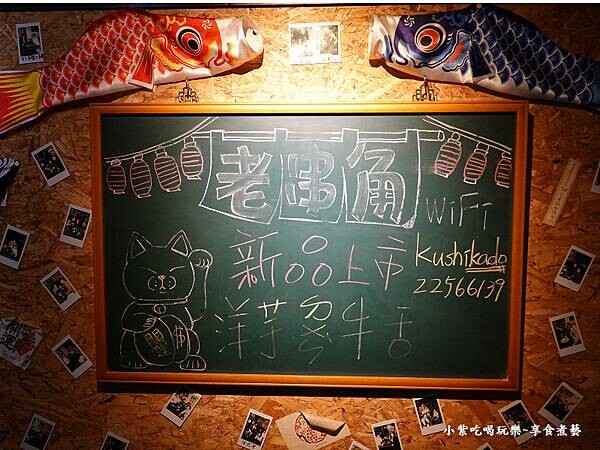 老串角
WiFi
Kushikado
22566139
新品上市
洋芋多牛舌
小紫吃喝玩樂~享食煮藝